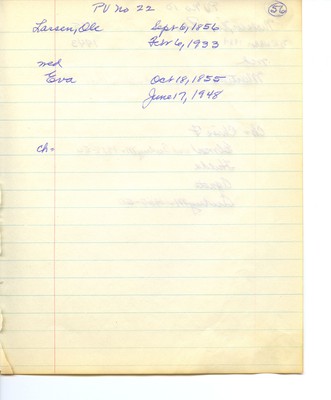 PV No 22
56
Larsen, Ole Sept 6, 1856
Febr 6, 1933
med
Eva Oct 18, 1855
June 17, 1948
ch-